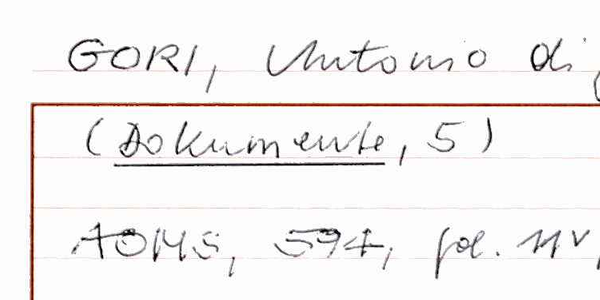 GORI, Antonio di
(Dokumente, 5)
AOMS, 594, fol. 11v,